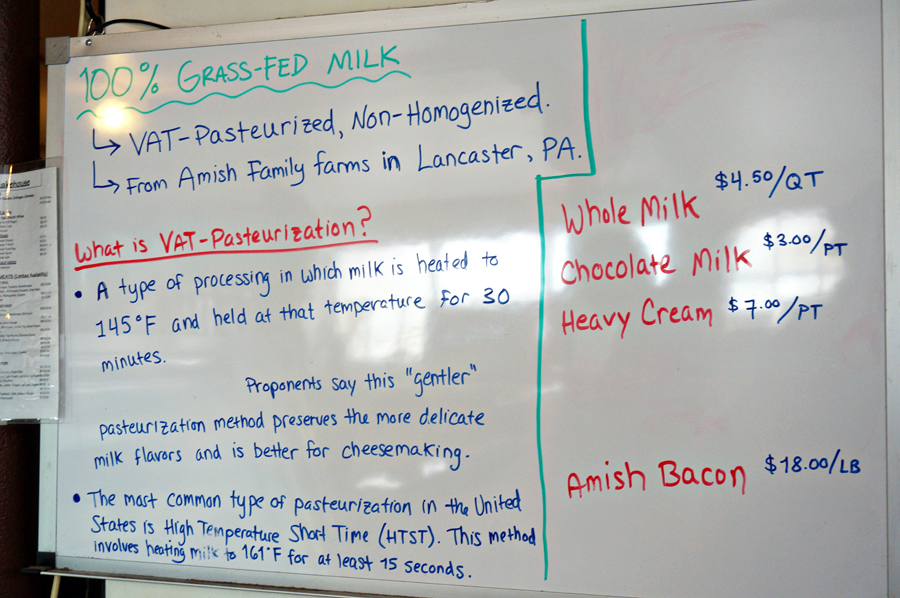 100% GRASS-FED MILK
↳ VAT-Pasteurized, Non-Homogenized.
↳ From Amish Family farms in Lancaster, PA.
What is VAT-Pasteurization?
• A type of processing in which milk is heated to
145°F and held at that temperature for 30
minutes.
Proponents say this "gentler"
pasteurization method preserves the more delicate
milk flavors and is better for cheesemaking.
• The most common type of pasteurization in the United
States is High Temperature Short Time (HTST). This method
involves heating milk to 161°F for at least 15 seconds.
Whole Milk $4.50/QT
Chocolate Milk $3.00/PT
Heavy Cream $7.00/PT
Amish Bacon $18.00/LB